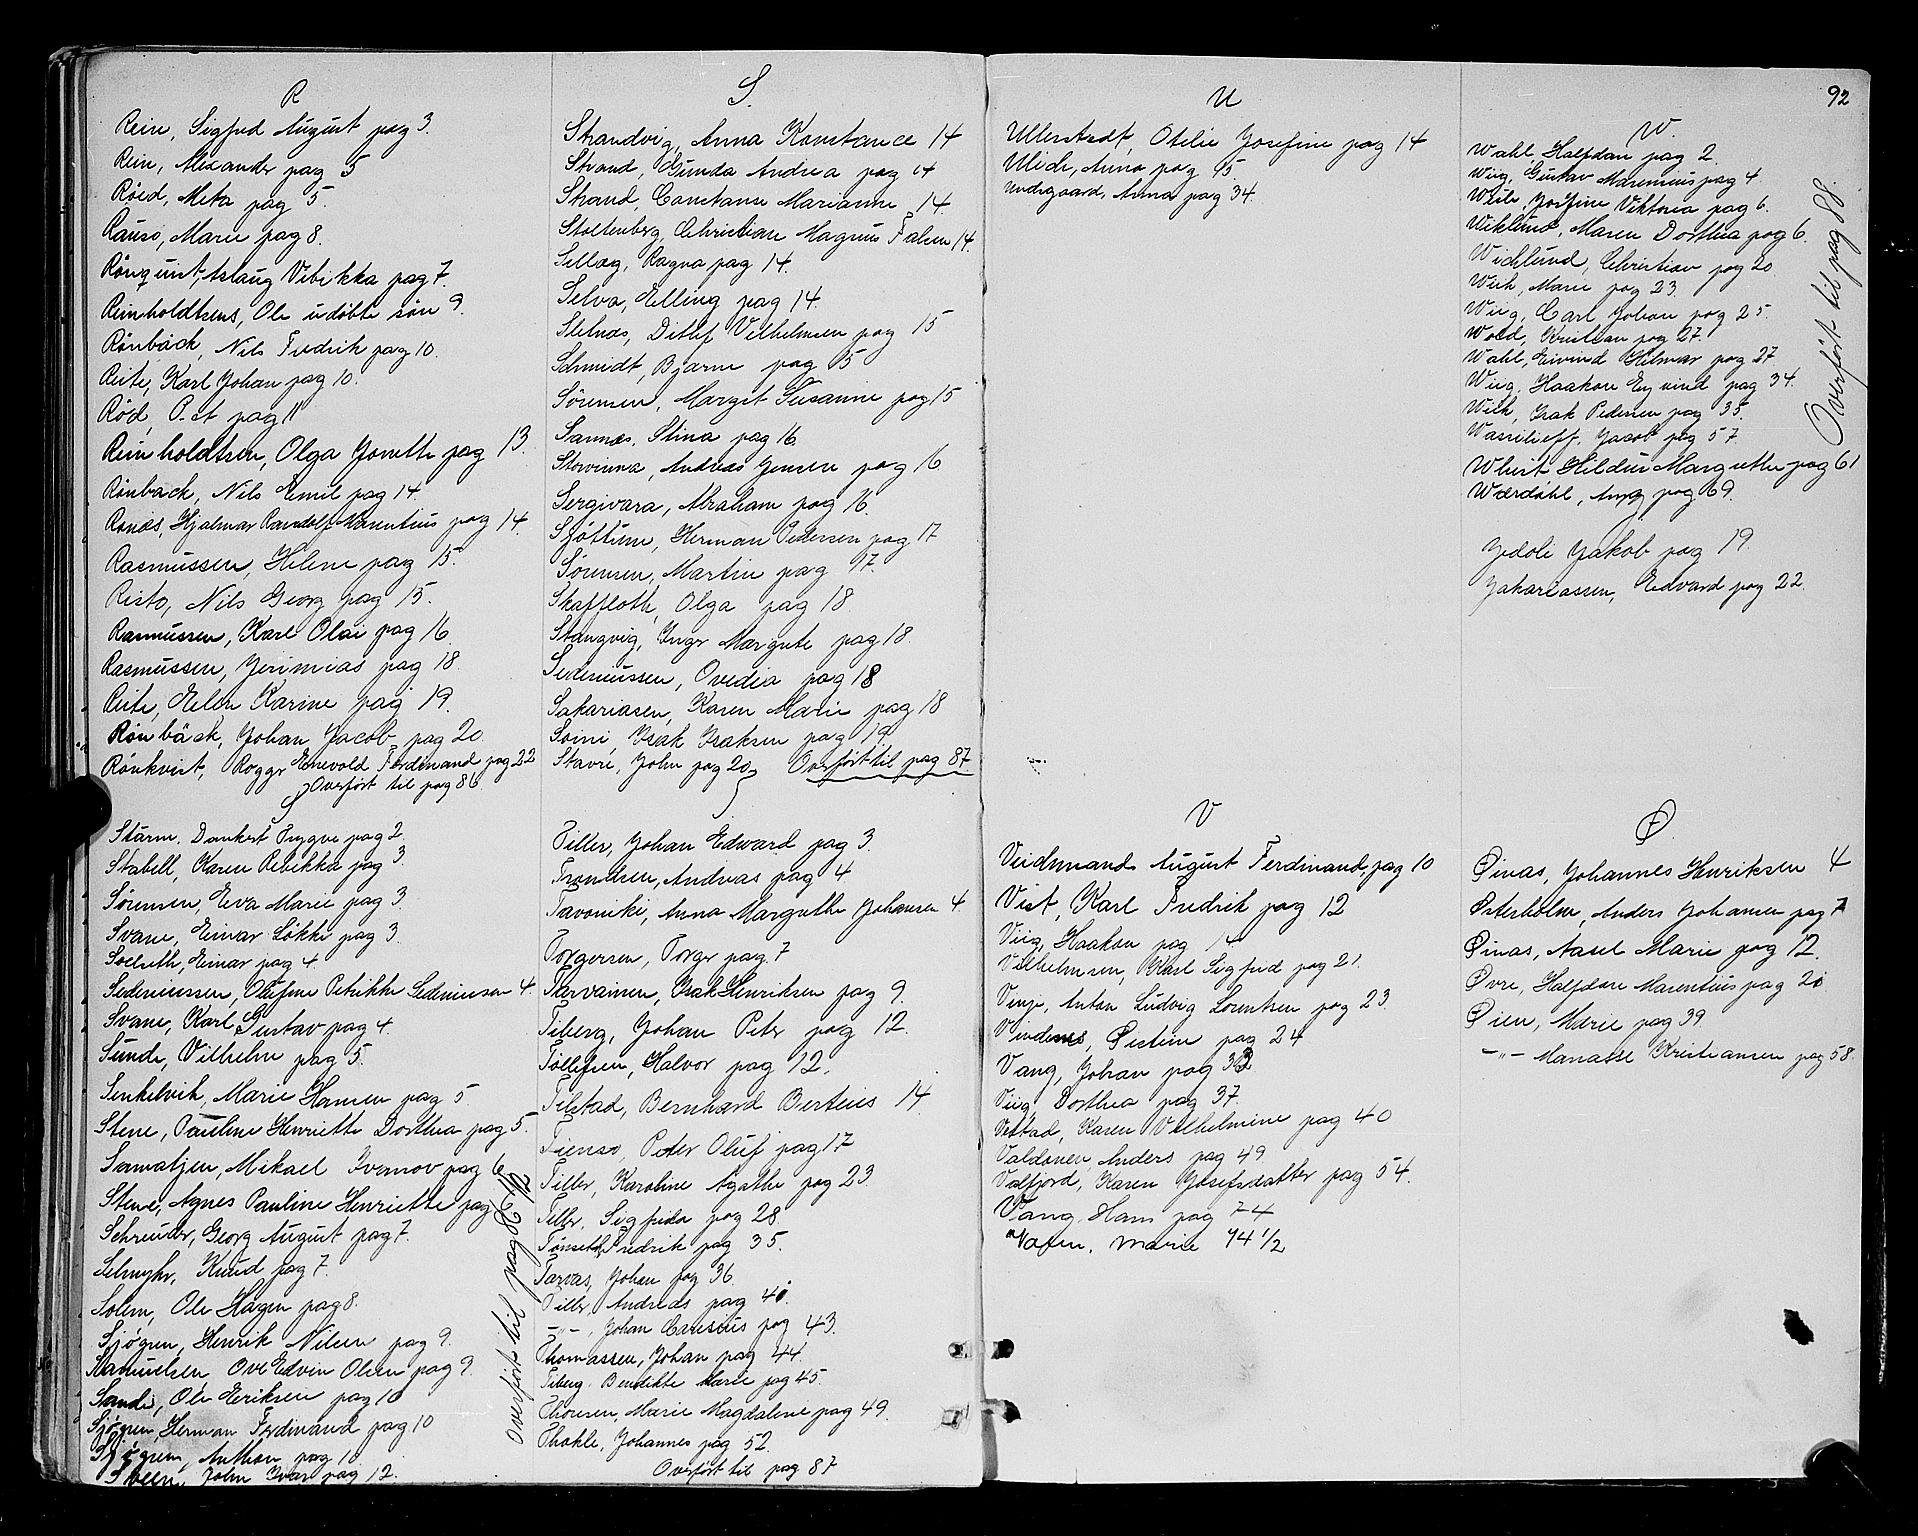 R
Rein, Sigfred August pag 3.
Rein, Alexander pag 5
Röed, Meta pag 5.
Rausö, Marie pag 8.
Rönquist, Aslaug Vebikka pag 7.
Reinholdtsens, Ole udöbte sön 9.
Rönbäck, Nils Fredrik pag 10.
Reite, Karl Johan pag 10.
Röd, P. et pag 11
Reinholdtsen, Olga Jonette pag 13.
Rönbäck, Nils Emil pag 14.
Rones, Hjalmar Randolf Marentius pag 14.
Rasmussen, Helene pag 15.
Risto, Nils Georg pag 15.
Rasmussen, Karl Olai pag 16
Rasmussen, Jerimias pag 18.
Reite, Ellen Karine pag 19.
Rönbäck, Johan Jacob pag 20
Rönkvist, Roggr Enevold Ferdinand pag 22
Overfört til pag 86.
S
Sturm, Dankert Trygve pag 2.
Stabell, Karen Rebikka pag 3.
Sörensen, Eva Marie pag 3.
Svane, Einar Lökke pag 3.
Soelseth, Einar pag 4.
Sedeniussen, Olufine Petrikke Sedeniusen 4.
Svane, Karl Gustav pag 4.
Sunde, Vilhelm pag 5.
Senkelvik, Marie Hansen pag 5
Stene, Pauline Henriette Dorthea pag 5.
Samatjen, Mikael Ivanov pag 6
Stene, Agnes Pauline Henriette pag
Schreuder, Georg August pag 7.
Selmyhr, Knud pag 7.
Solem, Ole Hagen pag 8.
Sjögren, Henrik Nilsen pag 9.
Samuelsen, Ove Edvin Olsen pag 9.
Sande, Ole Eriksen pag 10
Sjögren, Herman Ferdinand pag 10
Sjögren, Anthon pag 10
Steen, John Ivar pag 12.
Overfört til pag 86 1/2
S.
Strandvig, Anna Konstance 14
Strand, Gunda Andrea pag 14
Strand, Constanse Marianne 14.
Stoltenberg Christian Magnus Falsen 14.
Sellæg, Ragna pag 14.
Selva, Elling pag 14.
Stelnes, Ditlef Vilhelmsen pag 15
Schmidt, Bjarne pag 15
Sörensen, Margit Susanne pag 15
Sannes, Stina pag 16
Storvinna, Andreas Jensen pag 16
Sergivara, Abraham pag 16.
Sjöttun, Herman Pedersen pag 17
Sörensen, Martin pag 17.
Skaffloth, Olga pag 18
Stangvig, Inger Margrete pag 18
Sedeniussen, Ovedia pag 18
Sakariasen, Karen Marie pag 18
Soini, Isak Isaksen pag 19
Stavre, John pag 20 Overfört til pag 87
Tiller, Johan Edward pag 3.
Trondsen, Andreas pag 4
Tavoniki, Anna Margrethe Johansen 4.
Torgersen, Torger pag. 7
Tarvainen, Isak Henriksen pag 9.
Tiberg, Johan Peter pag 12.
Tollefsen, Halvor pag 12.
Tilstad, Bernhard Berteus 14
Fienso, Peter Oluf pag 17
Tiller, Karoline Agathe pag 23.
Tiller, Sigfrida pag 28
Tønseth, Fredrik pag 35.
Tarvas, Johan pag 36.
Tiller, Andreas pag 40.
-"- , Johan Carisius pag 43.
Thomassen, Johan pag 44.
Tiberg, Bendikte Marie pag 45
Thoresen, Marie Magdalene pag 49.
Thokle, Johannes pag 52.
Overfört til pag 87
U
Ullerstedt, Otelie Josefine pag 14
Ulich, Anna pag 15.
Undergaard, Anna pag 34.
V
Veidemands August Ferdinand, pag 10
Vist, Karl Fredrik pag 12
Viig, Haakon pag 14
Vilhelmsen, Karl Sigfrid pag 21.
Vinje, Anton Ludvig Lorentsen pag 23.
Vindenes, Øistein pag 24
Vang, Johan pag 32
Viig, Dorthea pag 37.
Vestad, Karen Vilhelmine pag 40
Valdonen, Anders pag 49
Valfjord, Karen Josefsdatter pag 54.
Vang, Hans pag 74
Vafen, Marie 74 1/2
92
W.
Wahl, Halfdan pag 2.
Wiig, Gustav Marenius pag 4
Wiik, Josefine Viktoria pag 6.
Wiklund, Maren Dorthea pag 6.
Wichlund, Christian pag 20
Wiik, Marie pag 23.
Wiig, Carl Johan pag 25.
Wold, Kristian pag 27.
Wahl, Eivind Hilmar pag 27
Wiig, Haakon Eyvind pag 34.
Wiik, Isak Pedersen pag 35.
Wassilieff, Jacob pag 57
Whist Hildur Margrethe pag 61
Wærdahl, Anna pag 69.
Overfört til pag 88.
Zedoli Jakob pag 19.
Zakariassen, Edvard pag 22.
Ø
Øinas, Johannes Henriksen 4
Østerholm, Anders Johansen pag 7
Øinas, Aasel Marie pag 12.
Øvre, Halfdan Marentius pag 20
Øien, Marie pag 39.
-"- Manasse Kristiansen pag 58.